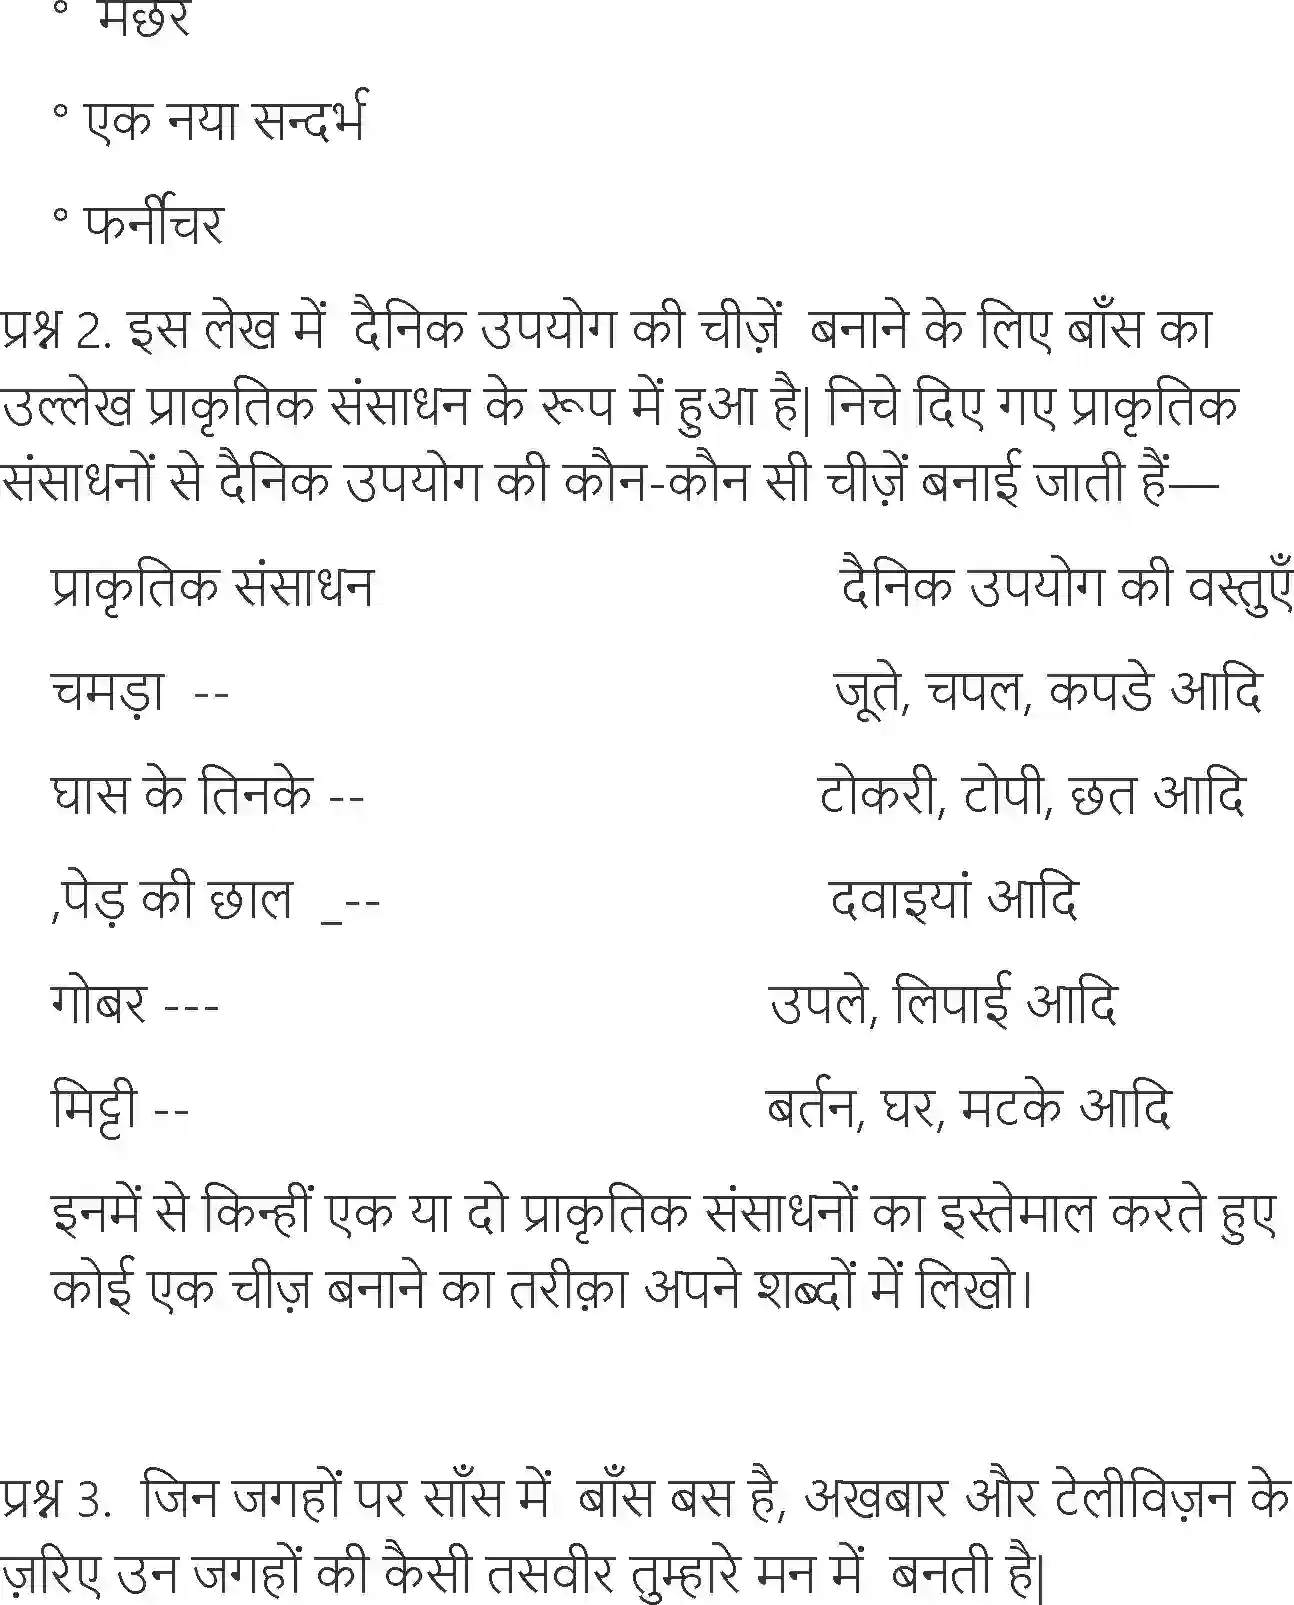 ° मछर
° एक नया सन्दर्भ
° फर्नीचर
प्रश्न 2. इस लेख में दैनिक उपयोग की चीज़ें बनाने के लिए बाँस का
उल्लेख प्राकृतिक संसाधन के रूप में हुआ है| निचे दिए गए प्राकृतिक
संसाधनों से दैनिक उपयोग की कौन-कौन सी चीज़ें बनाई जाती हैं—
प्राकृतिक संसाधन दैनिक उपयोग की वस्तुएँ
चमड़ा -- जूते, चपल, कपडे आदि
घास के तिनके -- टोकरी, टोपी, छत आदि
,पेड़ की छाल _-- दवाइयां आदि
गोबर --- उपले, लिपाई आदि
मिट्टी -- बर्तन, घर, मटके आदि
इनमें से किन्हीं एक या दो प्राकृतिक संसाधनों का इस्तेमाल करते हुए
कोई एक चीज़ बनाने का तरीक़ा अपने शब्दों में लिखो।
प्रश्न 3. जिन जगहों पर साँस में बाँस बस है, अखबार और टेलीविज़न के
ज़रिए उन जगहों की कैसी तसवीर तुम्हारे मन में बनती है|